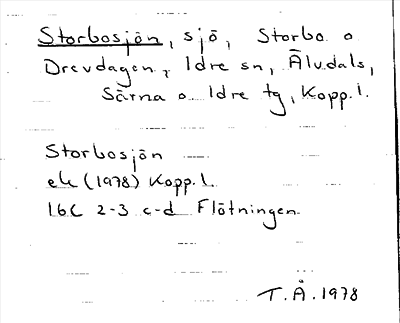 Storbosjön, sjö, Storbo o
Drevdagen, Idre sn, Älvdals,
Särna o Idre tg, Kopp.l.
Storbosjön
ek (1978) Kopp.l.
16C 2-3 c-d Flötningen.
T.Å.1978